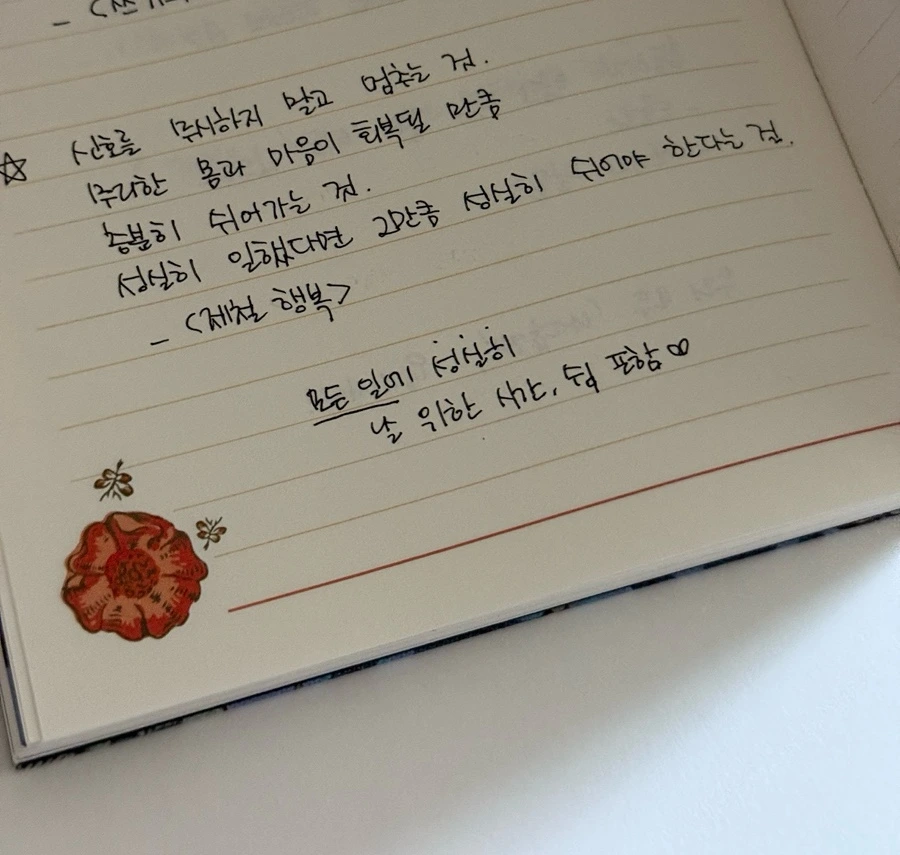 ☆ 신호를 무시하지 말고 멈추는 것.
무리한 몸과 마음이 회복될 만큼
충분히 쉬어가는 것.
성실히 일했다면 그만큼 성실히 쉬어야 한다는 걸.
- <제철 행복>
모든 일에 성실히
날 위한 시간, 쉼 포함 ∞